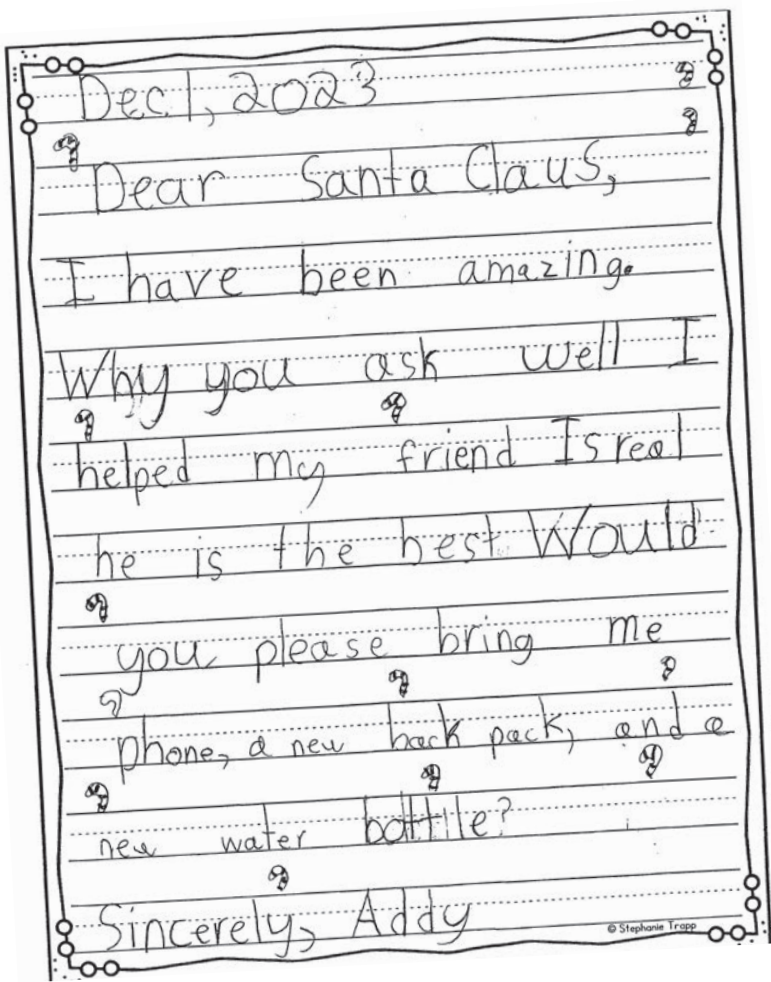 Dec. 1, 2023
Dear Santa Claus,
I have been amazing.
Why you ask well I
helped my friend Isreal
he is the best Would
you please bring me
phone, a new back pack, and a
new water botttle?
Sincerely, Addy
© Stephanie Trapp